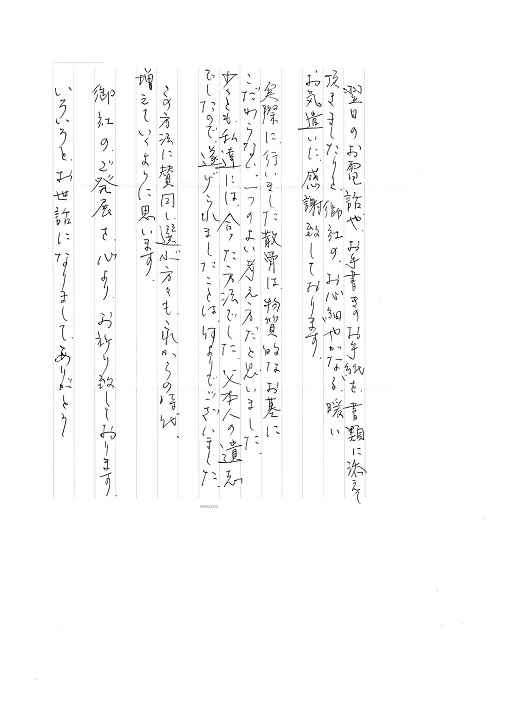 翌日のお電話や、お手書きのお手紙を、書類に添えて
頂きましたりと、御社の、お心細やかなる、暖い
お気遣いに、感謝致しております。
実際に、行いました散骨は、物質的なお墓に
こだわらない、一つのよい考え方だと思いました。
少くとも、私達には、合った方法でした。父本人の遺志
でしたので、遂げられましたことは、何よりでございました。
この方法に賛同し、選ぶ方々も、これからの時代、
増えていくように思います。
御社の、ご発展を、心より、お祈り致しております。
いろいろと、お世話になりまして、ありがとう
KOKUYO